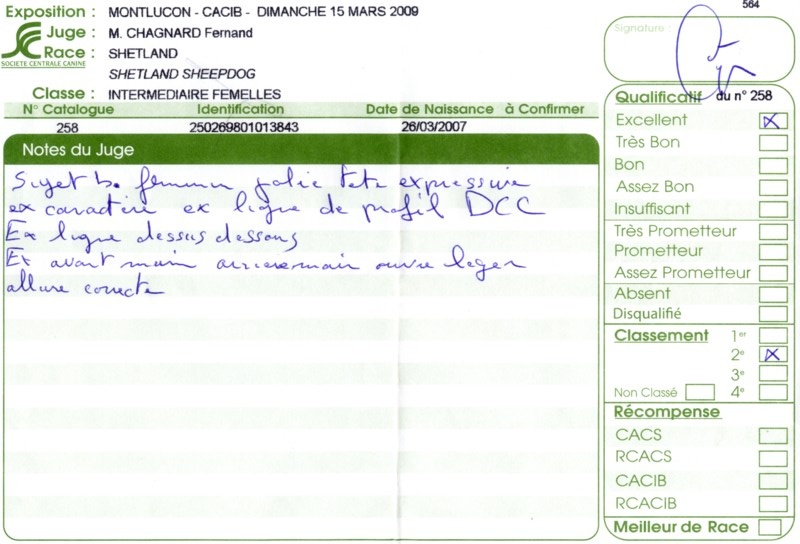 564
Exposition : MONTLUCON - CACIB - DIMANCHE 15 MARS 2009
Juge : M. CHAGNARD Fernand
Race : SHETLAND
SOCIETE CENTRALE CANINE
SHETLAND SHEEPDOG
Classe : INTERMEDIAIRE FEMELLES
N° Catalogue Identification Date de Naissance à Confirmer
258 250269801013843 26/03/2007
Notes du Juge
Sujet b. feminin jolie tete expressive
ex caractere ex ligne de profil DCC
Ex ligne dessus dessous
Ex avant main arrieremain ouvre leger
allure correcte
Signature :
Qualificatif du n° 258
Excellent X
Très Bon
Bon
Assez Bon
Insuffisant
Très Prometteur
Prometteur
Assez Prometteur
Absent
Disqualifié
Classement 1er
2e X
3e
Non Classé 4e
Récompense
CACS
RCACS
CACIB
RCACIB
Meilleur de Race